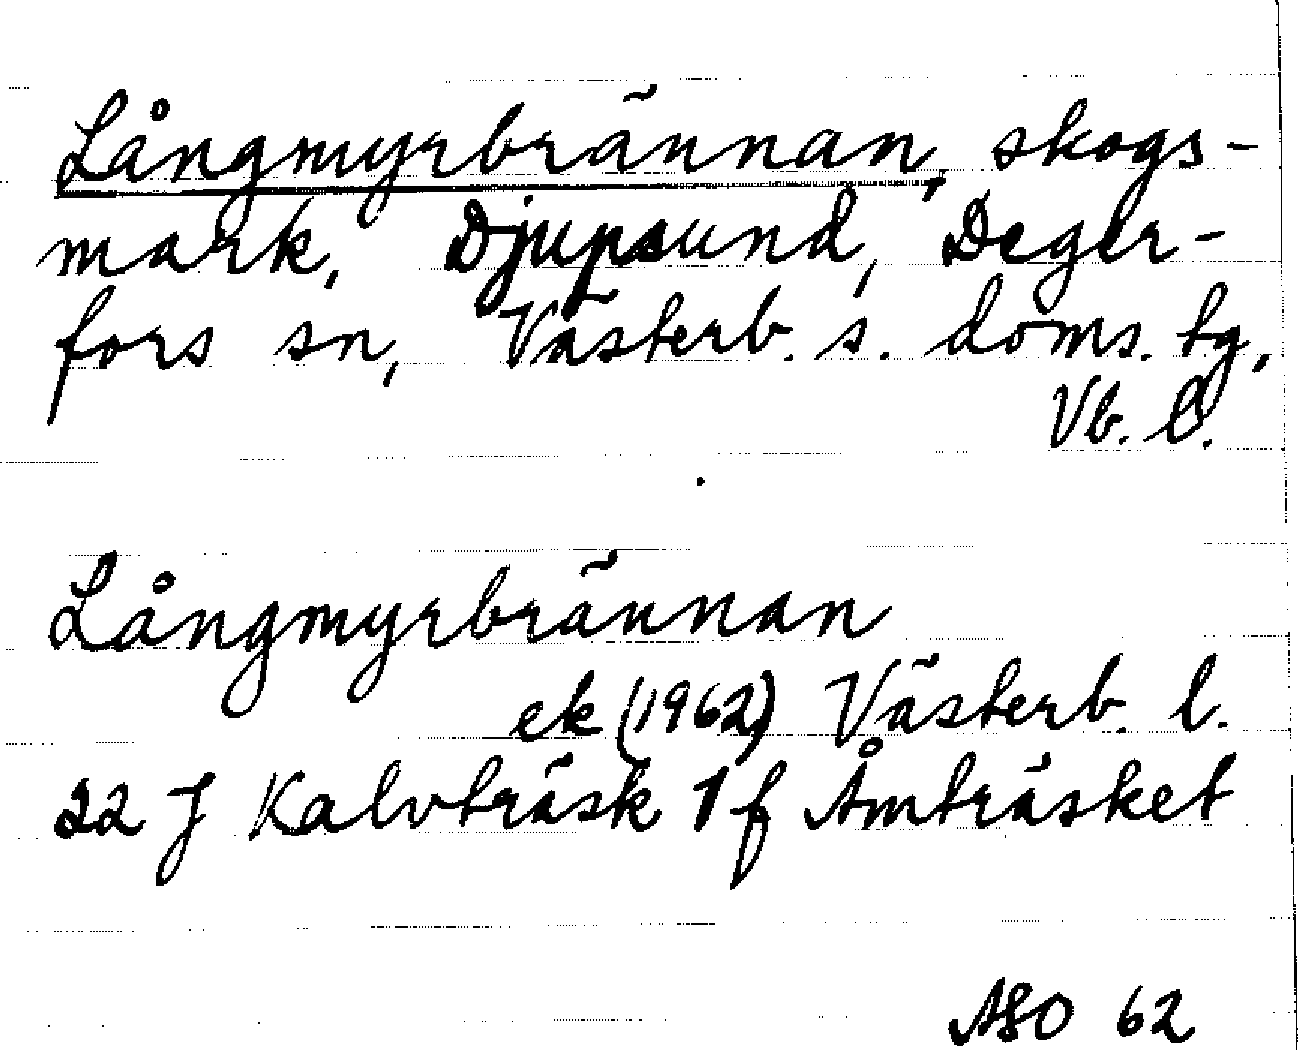 Långmyrbrännan, skogs-
mark, Djupsund, Deger-
fors sn, Västerb. s. doms. tg,
Vb. l.
Långmyrbrännan
ek (1962) Västerb. l.
22 J Kalvträsk 1 f Åmträsket
ASO 62